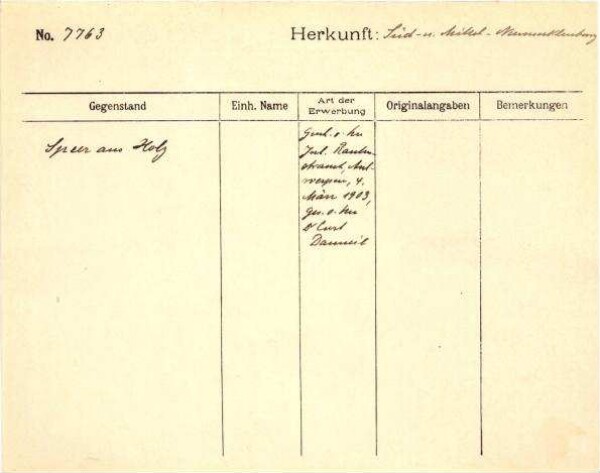 No. 7763 Herkunft: Süd- u. Mittel- Neumecklenburg
Gegenstand Einh. Name Art der Erwerbung Originalangaben Bemerkungen
Speer aus Holz
Gesch. v. Hn
Jul. Rauten-
strauch, Ant-
werpen, 4.
März 1903,
ges. v. Hn
Dr Curt
Danneil